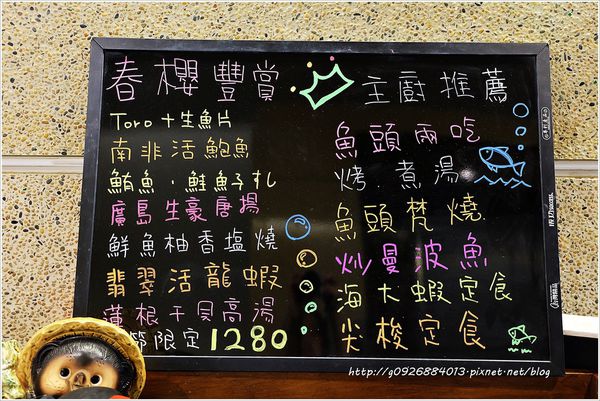 春櫻豐賞
Toro+生魚片
南非活鮑魚
鮪魚.鮭魚子札
廣島生豪唐揚
鮮魚柚香塩燒
翡翠活龍蝦
蓮根干貝高湯
限定1280
主廚推薦
魚頭兩吃
烤.煮湯
魚頭梵燒
炒曼波魚
海大蝦定食
尖梭定食
http://g0926884013.pixnet.net/blog